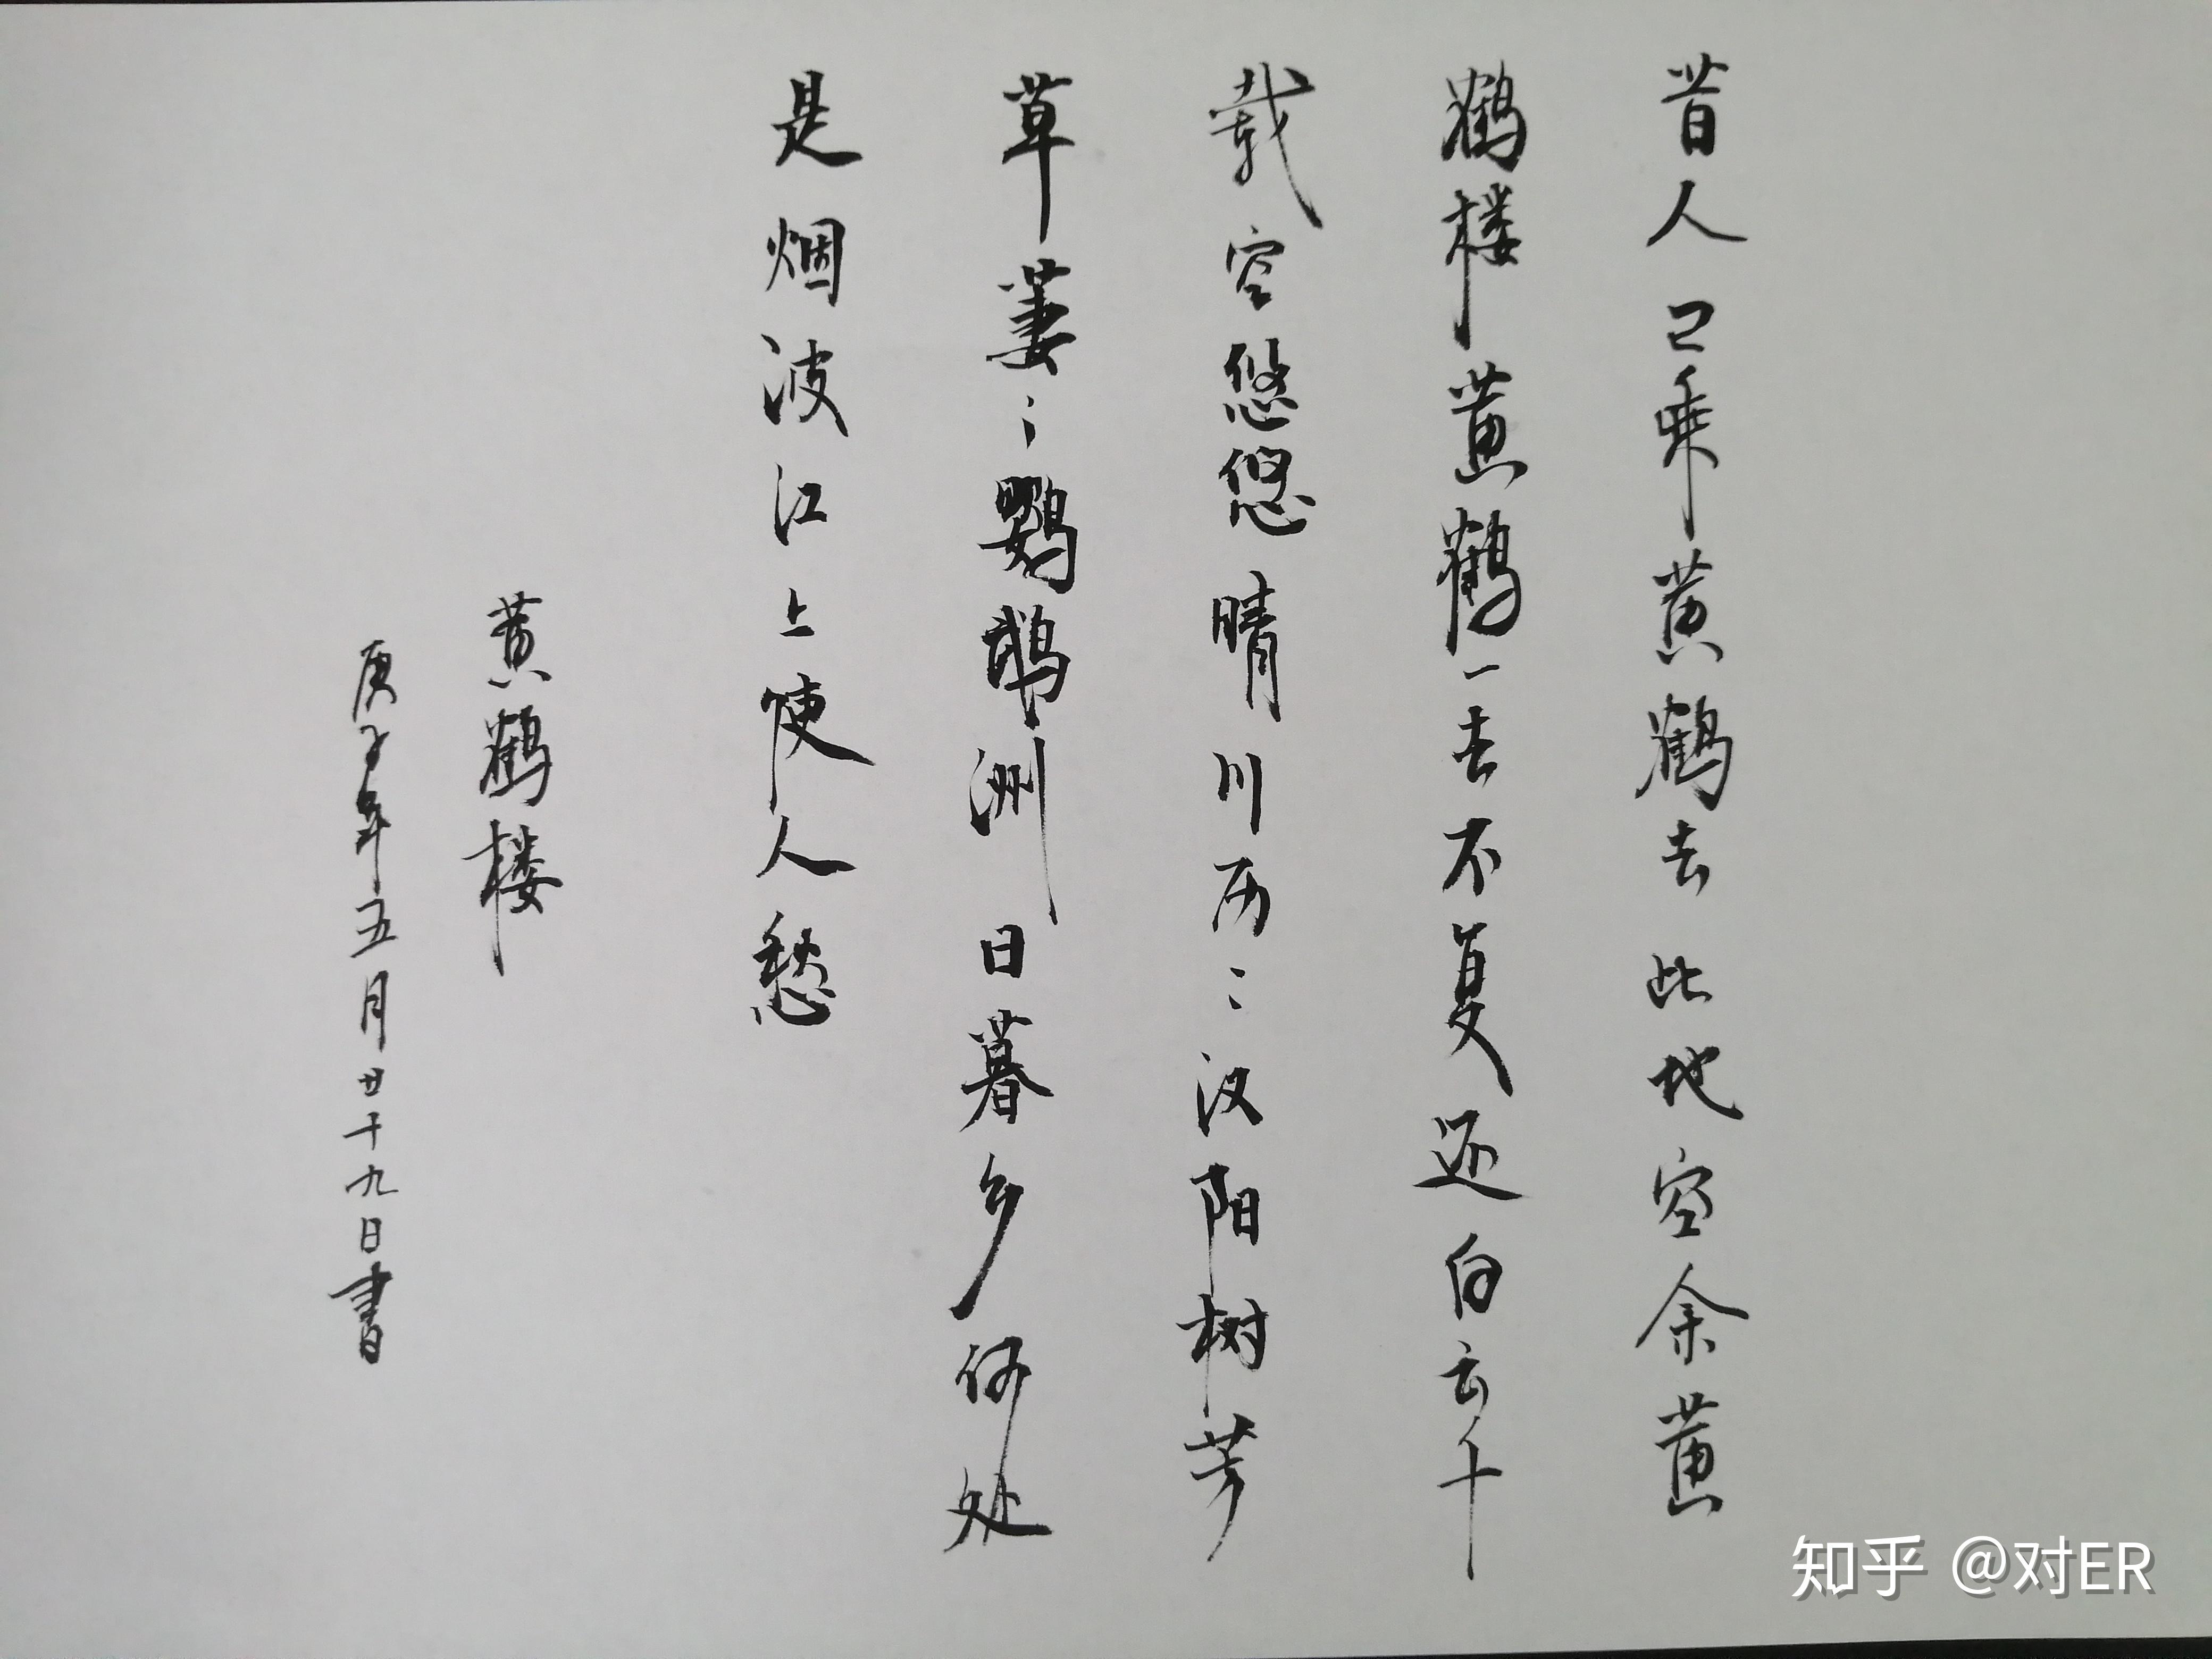 昔人已乘黄鹤去此地空余黄
鹤楼黄鹤一去不复返白云千
载空悠悠晴川历〻汉阳树芳
草萋〻鹦鹉洲日暮乡何处
是烟波江上使人愁
黄鹤楼
庚子年五月廿十九日書
知乎 @对ER